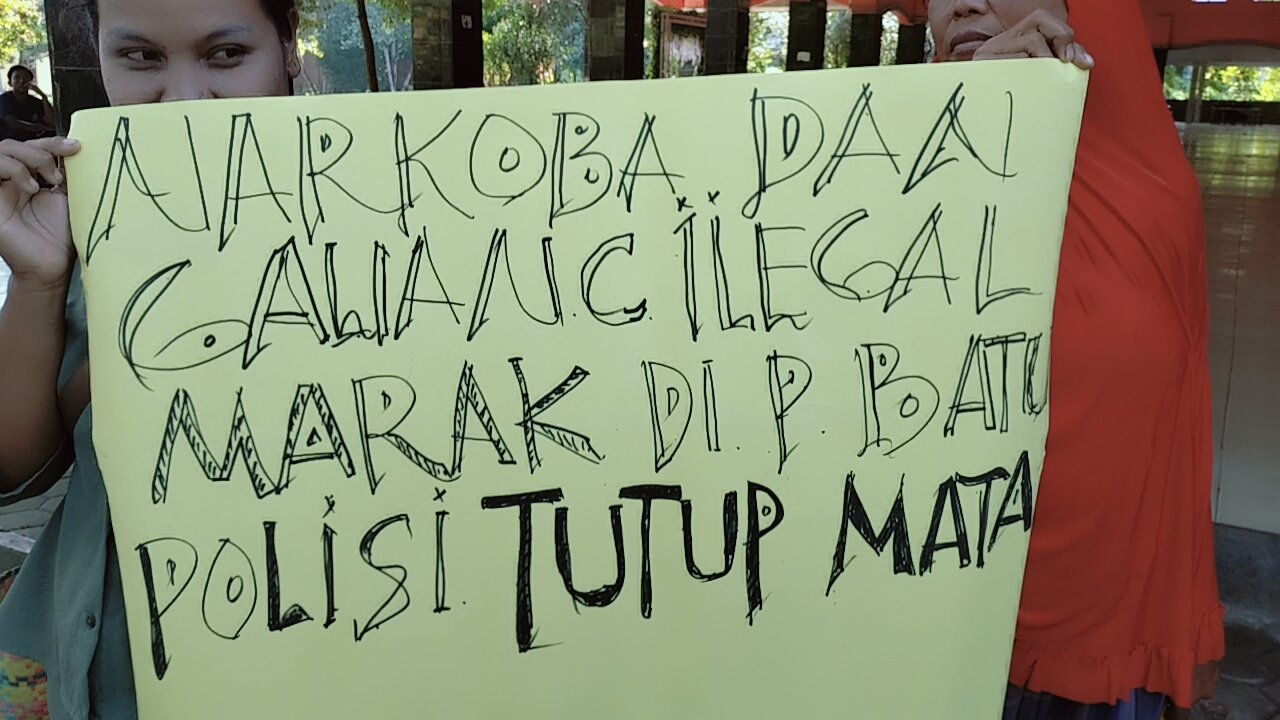 NARKOBA DAN
GALIAN.C. ILEGAL
MARAK DI. P. BATU
POLISI. TUTUP MATA